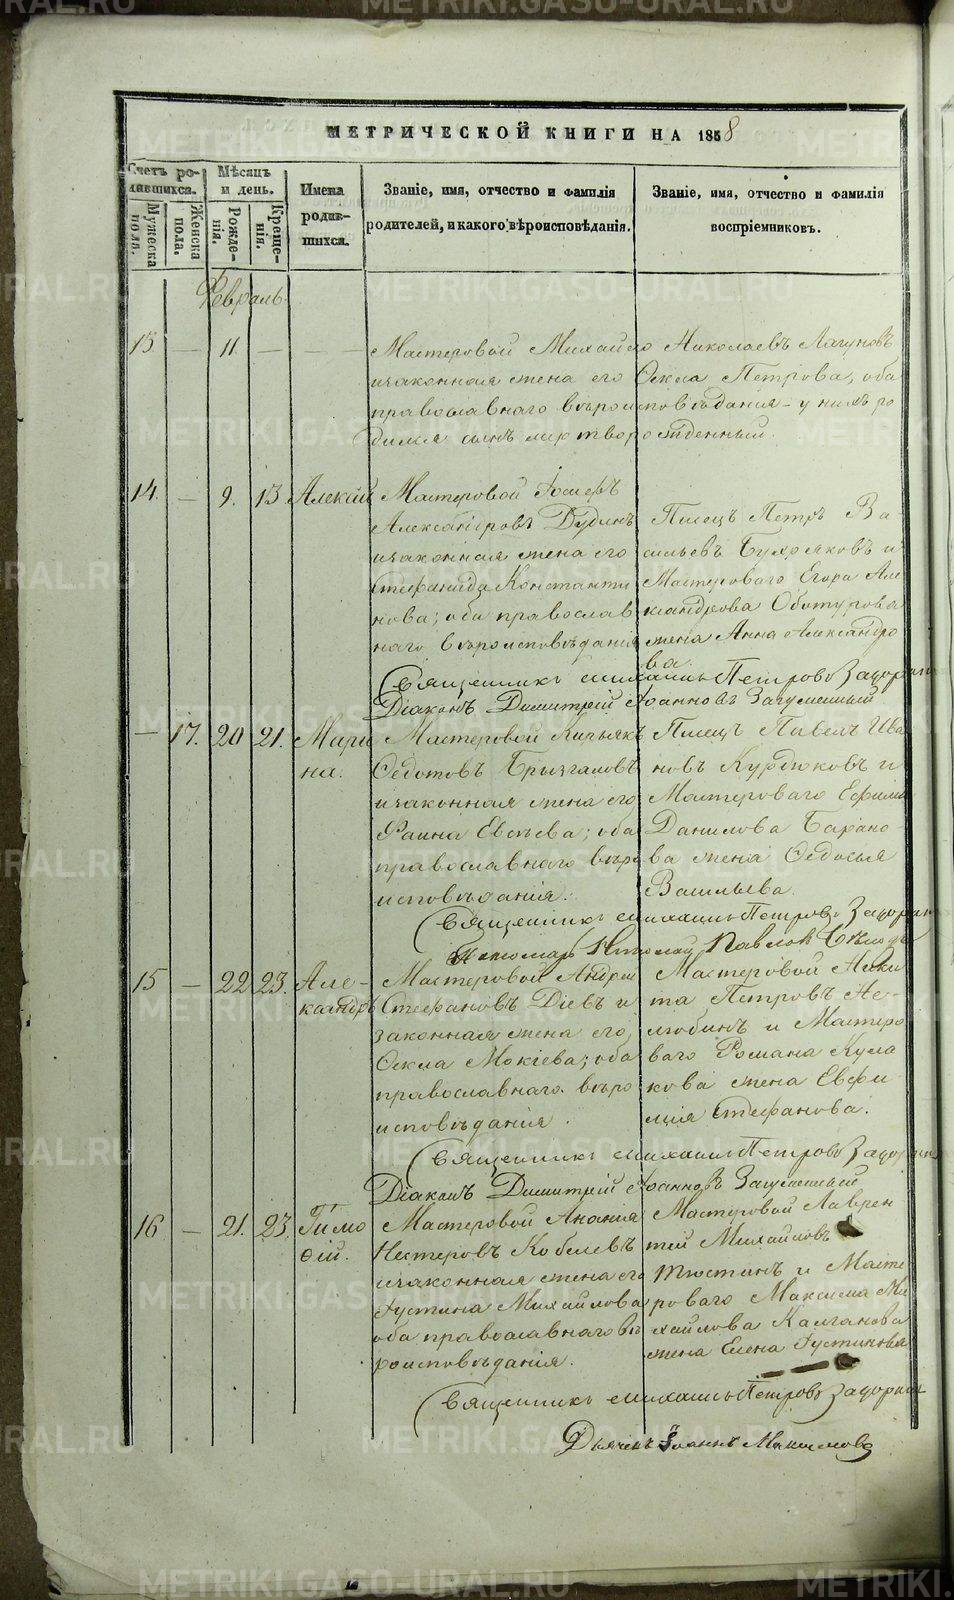 МЕТРИЧЕСКОЙ КНИГИ НА 1858
Счетъ родившихся.
Мужеска пола.
Женска пола.
Мѣсяцъ и день.
Рожденія.
Крещенія.
Имена родившихся.
Званіе, имя, отчество и фамилія родителей, и какого вѣроисповѣданія.
Званіе, имя, отчество и фамилія воспріемниковъ.
Февраль
13. — 11. — — —
Мастеровой Михайло Николаевъ Лагуновъ
и законная жена его Петрова, оба
православнаго вѣроисповѣданія – у нихъ ро
дился сынъ мертворожденный.
14. — 9. 13 Алексій
Мастеровой Іосифъ
Александровъ Дудинъ
и законная жена его
Стефанида Константи
нова; оба православ
наго вѣроисповѣданія
Писецъ Петръ Ва-
сильевъ и
Мастероваго Егора Але
ксандрова Обатурова
жена Анна Александро
ва.
Священникъ Михаилъ Петровъ
Діаконъ Димитрій Іоанновъ
— 17. 20 21. Мари
на.
Мастеровой Кирьякъ
Ѳедотовъ Брызгаловъ
и законная жена его
Фаина Евсѣева; оба
православнаго вѣро
исповѣданія.
Писецъ Павелъ Ива
новъ Курдюковъ и
Мастероваго Ефима
Данилова Барано-
ва жена Ѳедосья
Васильева.
Священникъ Михаилъ Петровъ
Пономарь Николай Павловъ
15 — 22 23. Але-
ксандръ
Мастеровой Андрей
Стефановъ Діевъ и
законная жена его
Мокіева; оба
православнаго вѣро
исповѣданія.
Мастеровой Ники
та Петровъ Не-
любинъ и Мастеро
ваго Романа Кула
кова жена Евфи
мія Стефанова.
Священникъ Михаилъ Петровъ
Діаконъ Димитрій Іоанновъ
16 — 21. 23. Тимо
ѳій.
Мастеровой Ананія
Нестеровъ Кобелевъ
и законная жена его
Іустина Михайлова
оба православнаго вѣ
роисповѣданія.
Мастеровой Лаврен
тій Михайловъ
и Масте
роваго Максима Ми
хайлова Калганова
жена Елена Іустинова
Священникъ Михаилъ Петровъ
Дьячекъ Іоаннъ
METRIKI.GASO-URAL.RU